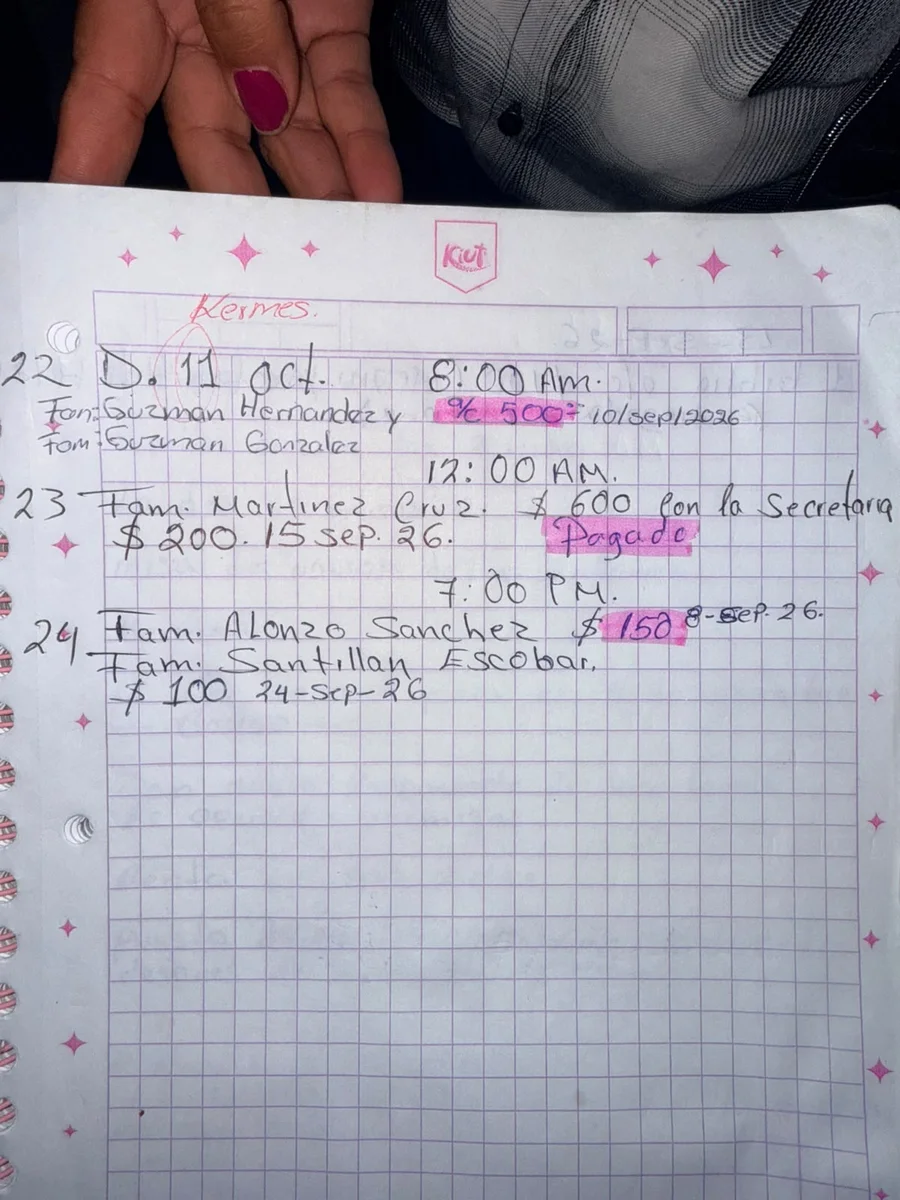 Kiut
Kermes.
22 D. 11 oct. 8:00 Am.
Fam: Guzman Hernandez y a/c 500 = 10/sep/2026
Fam: Guzman Gonzalez
12:00 AM.
23 Fam. Martinez Cruz. $ 600 con la Secretaria
$ 200. 15 sep. 26. Pagado
7:00 PM.
24 Fam. Alonzo Sanchez $ 150 8-sep. 26.
Fam. Santillan Escobar.
$ 100 24-sep-26